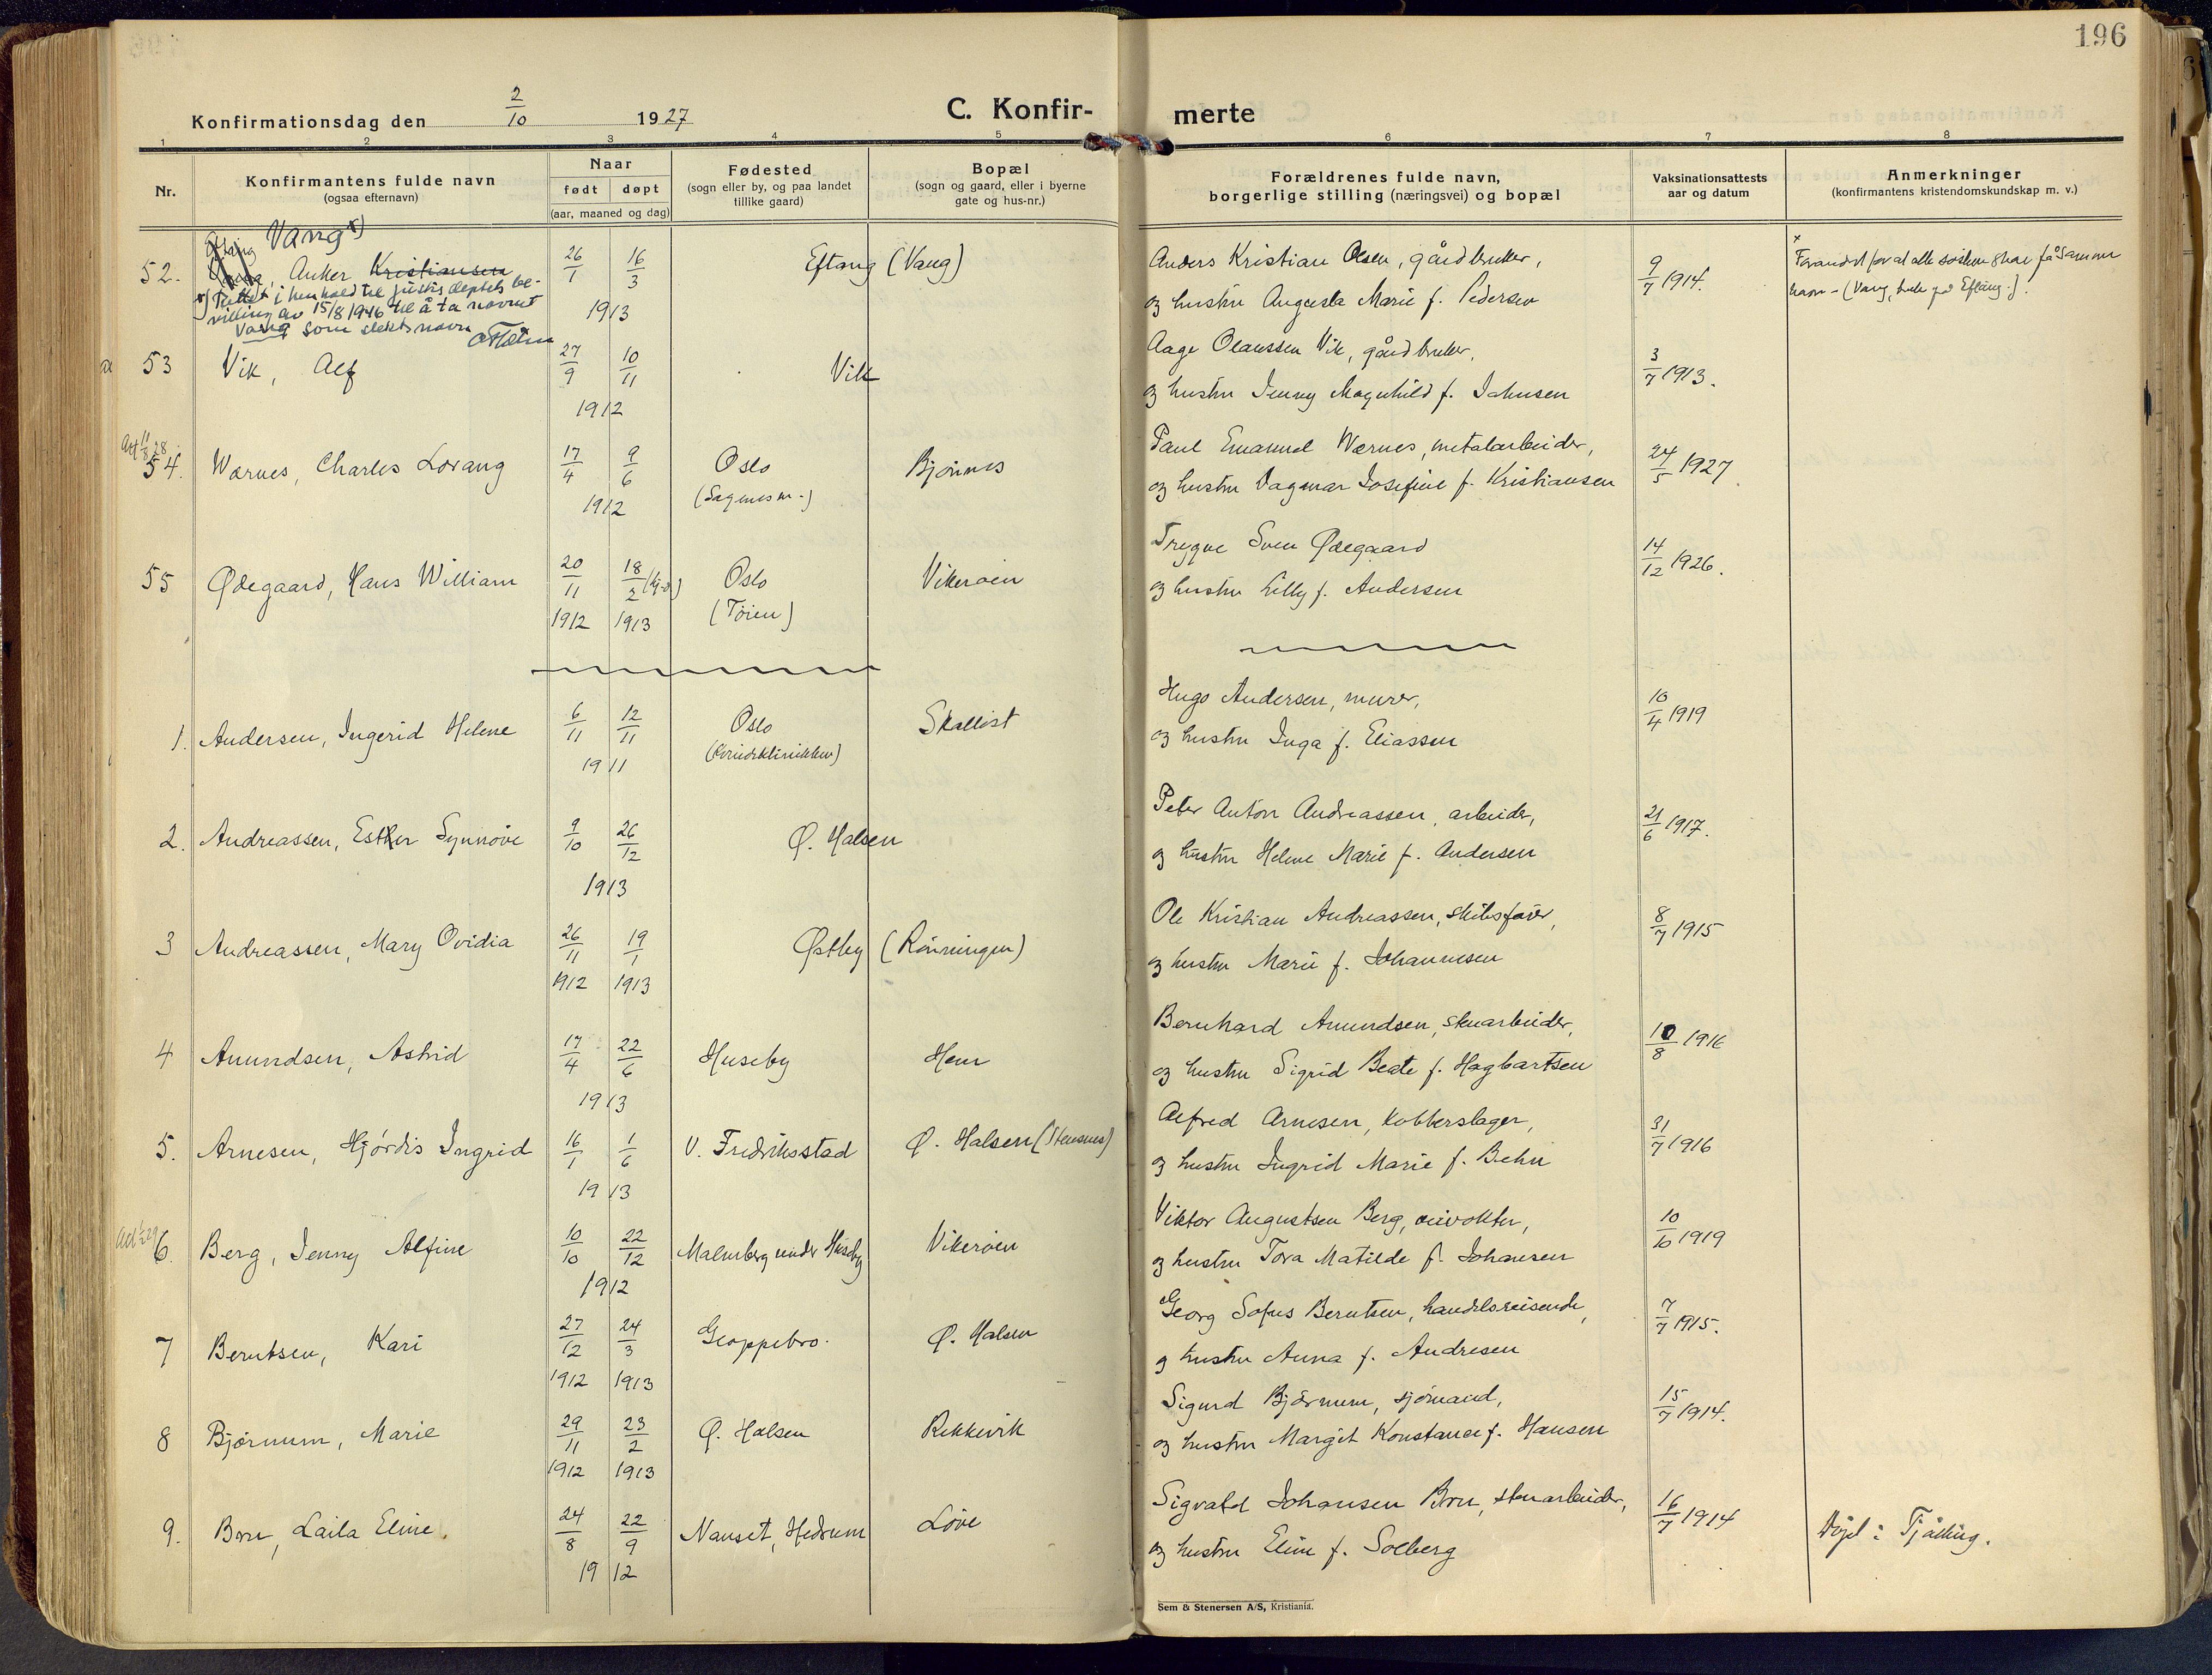 196
Konfirmationsdag den 2/10 1927
C. Konfirmerte
1 2 3 4 5 6 7 8
Nr.
Konfirmantens fulde navn
(ogsaa efternavn)
Naar
født døpt
(aar, maaned og dag)
Fødested
(sogn eller by, og paa landet
tillike gaard)
Bopæl
(sogn og gaard, eller i byerne
gate og hus-nr.)
Forældrenes fulde navn,
borgerlige stilling (næringsvei) og bopæl
Vaksinationsattests
aar og datum
Anmerkninger
(konfirmantens kristendomskundskap m. v.)
Vang x)
52. Anker Kristiansen 26/1 16/3 1913 Eftang (Vang)
x) Tillatt i henhold til justis deptets be-
villing av 15/8 1946 til å ta navnet
Vang som slektsnavn
Anders Kristian Olsen, gårdbruker,
og hustru Augusta Marie f. Pedersen
9/7 1914.
x Forandret for at alle søsken skal få samme
navn - (Vang, bruk på Eftang.).
53 Vik, Alf 27/9 10/11 1912 Vik
Aage Olaussen Vik, gårdbruker,
og hustru Jenny Magnhild f. Johnsen
3/7 1913.
Att 11/8 28
54. Wærnes, Charles Lorang 17/4 9/6 1912 Oslo (Sagenes m.) Bjønnes
Paul Emanuel Wærnes, metalarbeider,
og hustru Dagmar Josefine f. Kristiansen
24/5 1927
55 Ødegaard, Hans William 20/11 1912 18/2 1913 Oslo (Tøien) Vikerøen
Trygve Sven Ødegaard
og hustru Lilly f. Andersen
14/12 1926.
1. Andersen, Ingerid Helene 6/11 12/11 1911 Oslo (Kvindeklinikken) Skallist
Hugo Andersen, murer,
og hustru Inga f. Eliassen
10/4 1919
2. Andreassen, Esther Synnøve 9/10 26/12 1913 Ø. Halsen
Peter Anton Andreassen, arbeider,
og hustru Helene Marie f. Andersen
21/6 1917.
3 Andreassen, Mary Ovidia 26/11 1912 19/1 1913 Østby (Rønningen)
Ole Kristian Andreassen, skibsfører,
og hustru Marie f. Johannesen
8/7 1915
4 Amundsen, Astrid 17/4 22/6 1913 Huseby Hem
Bernhard Amundsen, stenarbeider,
og hustru Sigrid Beate f. Hagbartsen
10/8 1916
5. Arnesen, Hjørdis Ingrid 16/1 1/6 1913 V. Fredriksstad Ø. Halsen (Stensnes)
Alfred Arnesen, kobberslager,
og hustru Ingrid Marie f. Behn
31/7 1916
6. Berg, Jenny Alfine 10/10 22/12 1912 Malmberg under Huseby Vikerøen
Viktor Augustsen Berg,
og hustru Tora Matilde f. Johansen
10/10 1919
7 Berntsen, Kari 27/12 1912 24/3 1913 Gloppebro. Ø. Halsen
Georg Sofus Berntsen, handelsreisende,
og hustru Anna f. Andresen
7/7 1915.
8 Bjørnum, Marie 29/11 1912 23/2 1913 Ø. Halsen Rekkevik
Sigurd Bjørnum, sjømand,
og hustru Margit Konstance f. Hansen
15/7 1914.
9. Bru, Laila Eline. 24/8 22/9 1912 Nanset, Hedrum Løve
Sigvald Johansen Bru, stenarbeider,
og hustru Eline f. Solberg
16/7 1914
Døpt i Tjølling.
Sem & Stenersen A/S, Kristiania.